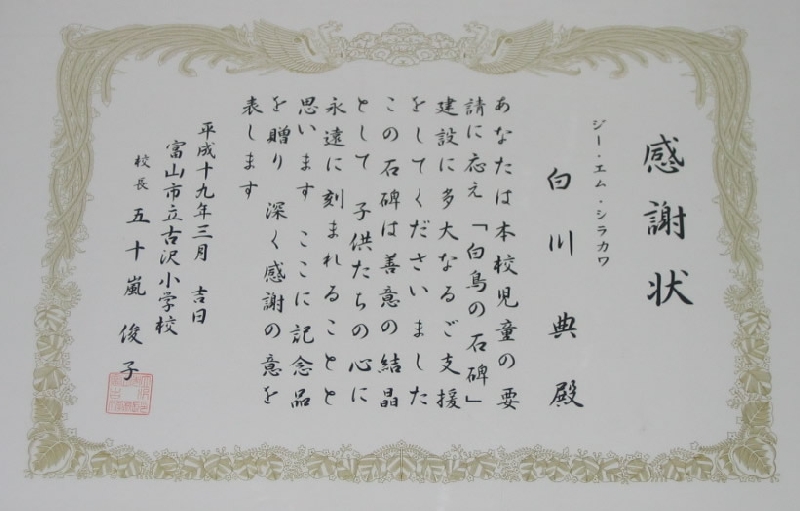 感謝状
ジー・エム・シラカワ
白川典殿
あなたは本校児童の要
請に応え「白鳥の石碑」
建設に多大なるご支援
をしてくださいました
この石碑は善意の結晶
として 子供たちの心に
永遠に刻まれることと
思います ここに記念品
を贈り 深く感謝の意を
表します
平成十九年三月 吉日
富山市立古沢小学校
校長 五十嵐 俊子